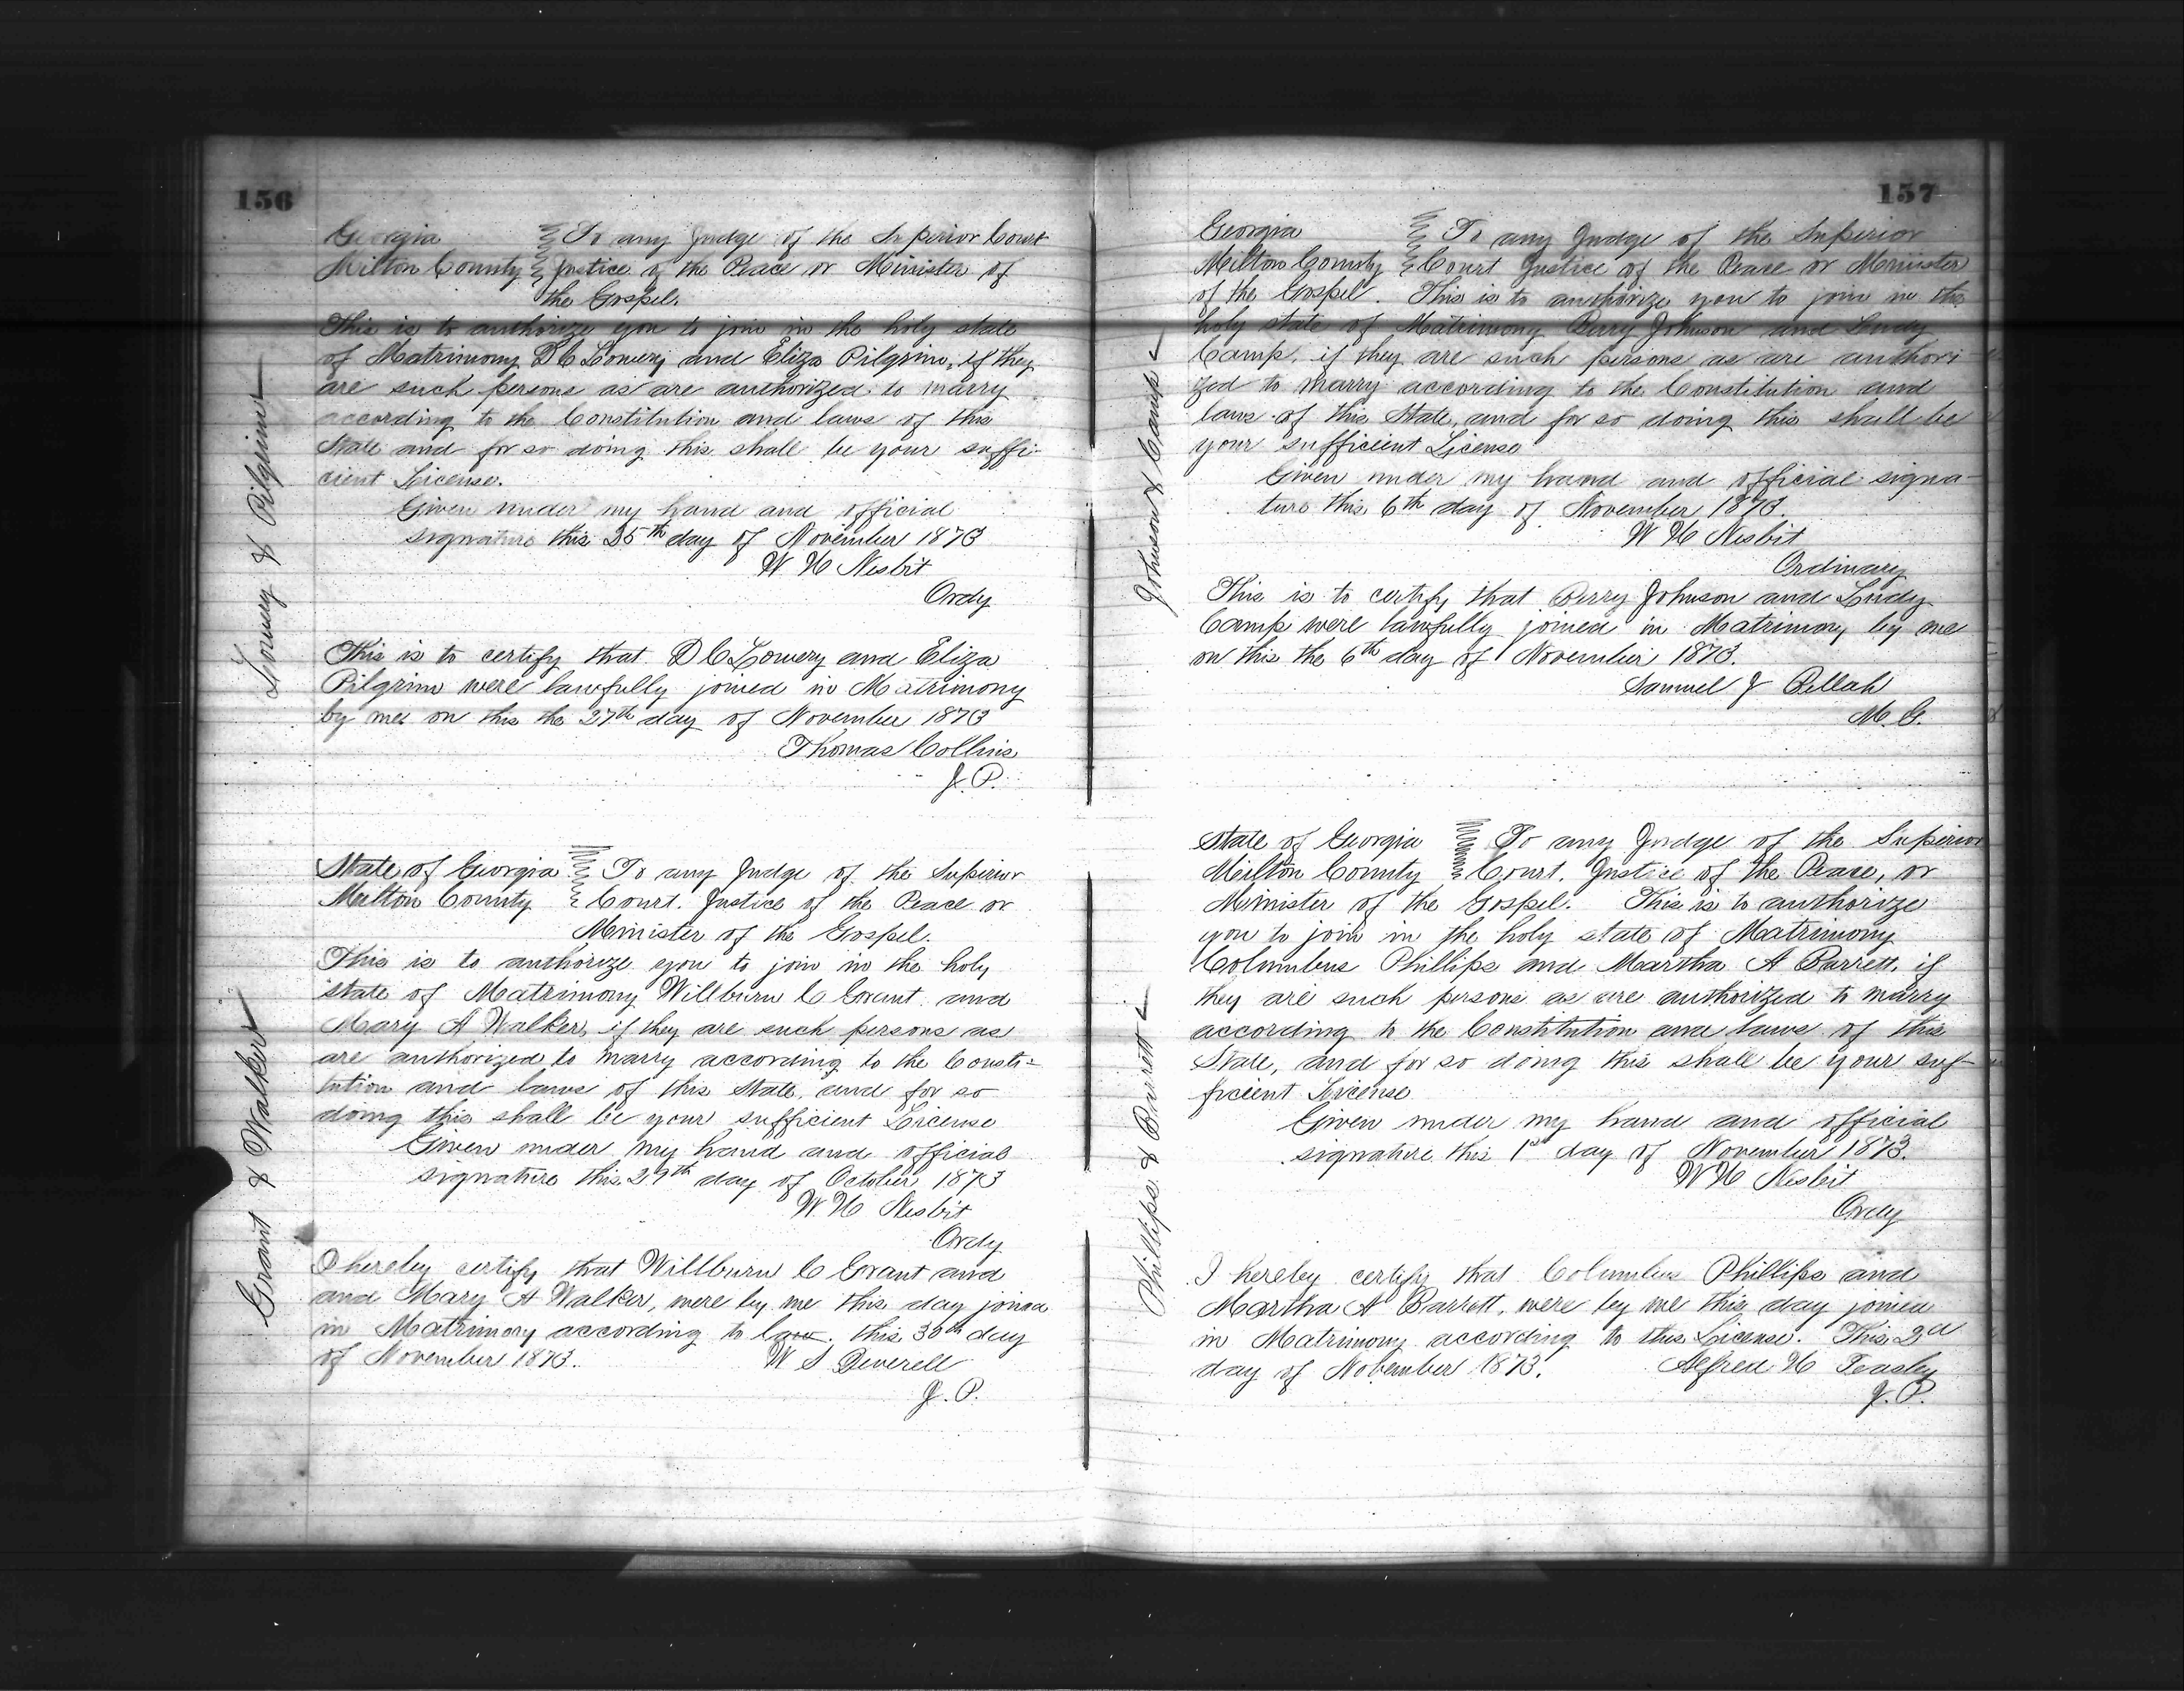 156
Georgia To any Judge of the Superior Court
Milton County Justice of the Peace or Minister of
the Gospel.
This is to authorize you to join in the holy state
of Matrimony D C Lowery and Eliza Pilgrim, if they
are such persons as are authorized to marry
according to the Constitution and laws of this
State and for so doing this shall be your suffi-
cient License.
Given under my hand and official
signature this 25th day of November 1873
W H Nesbit
Ordy
This is to certify that D C Lowery and Eliza
Pilgrim were lawfully joined in Matrimony
by me on this the 27th day of November 1873
Thomas Collins
J. P.
Lowery & Pilgrim
State of Georgia To any Judge of the Superior
Milton County Court. Justice of the Peace or
Minister of the Gospel.
This is to authorize you to join in the holy
state of Matrimony Willburn C Grant and
Mary A Walker, if they are such persons as
are authorized to marry according to the Consti-
tution and laws of this State, and for so
doing this shall be your sufficient License
Given under my hand and official
signature this 29th day of October 1873
W H Nesbit
Ordy
I hereby certify that Willburn C Grant and
and Mary A Walker, were by me this day joined
in Matrimony according to law. this 30th day
of November 1873. W S Deverell
J. P.
Grant & Walker
157
Georgia To any Judge of the Superior
Milton County Court Justice of the Peace or Minister
of the Gospel. This is to authorize you to join in the
holy state of Matrimony Berry Johnson and Lindy
Camp, if they are such persons as are authori-
zed to marry according to the Constitution and
laws of this State, and for so doing this shall be
your sufficient License
Given under my hand and official signa-
ture this 6th day of November 1873.
W H Nesbit
Ordinary
This is to certify that Berry Johnson and Lindy
Camp were lawfully joined in Matrimony by me
on this the 6th day of November 1873.
Samuel J Bellah
M. G.
Johnson & Camp
State of Georgia To any Judge of the Superior
Milton County Court. Justice of the Peace, or
Minister of the Gospel. This is to authorize
you to join in the holy state of Matrimony
Columbus Phillips and Martha A Barrett, if
they are such persons as are authorized to marry
according to the Constitution and laws of this
State, and for so doing this shall be your suf-
ficient License
Given under my hand and official
signature this 1st day of November 1873.
W H Nesbit
Ordy
I hereby certify that Columbus Phillips and
Martha A Barrett, were by me this day joined
in Matrimony according to this License. This 2d
day of November 1873. Alfred H Teasley
J. P.
Phillips & Barrett